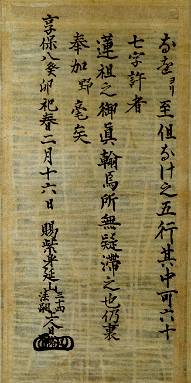 なを ヨリ 至但なけ之五行其中可六十
七字許者
蓮祖之御真翰焉所無疑滞之也仍裏
奉加野毫矣
享保八癸卯祀春二月十六日 賜紫身延山三十四法嗣